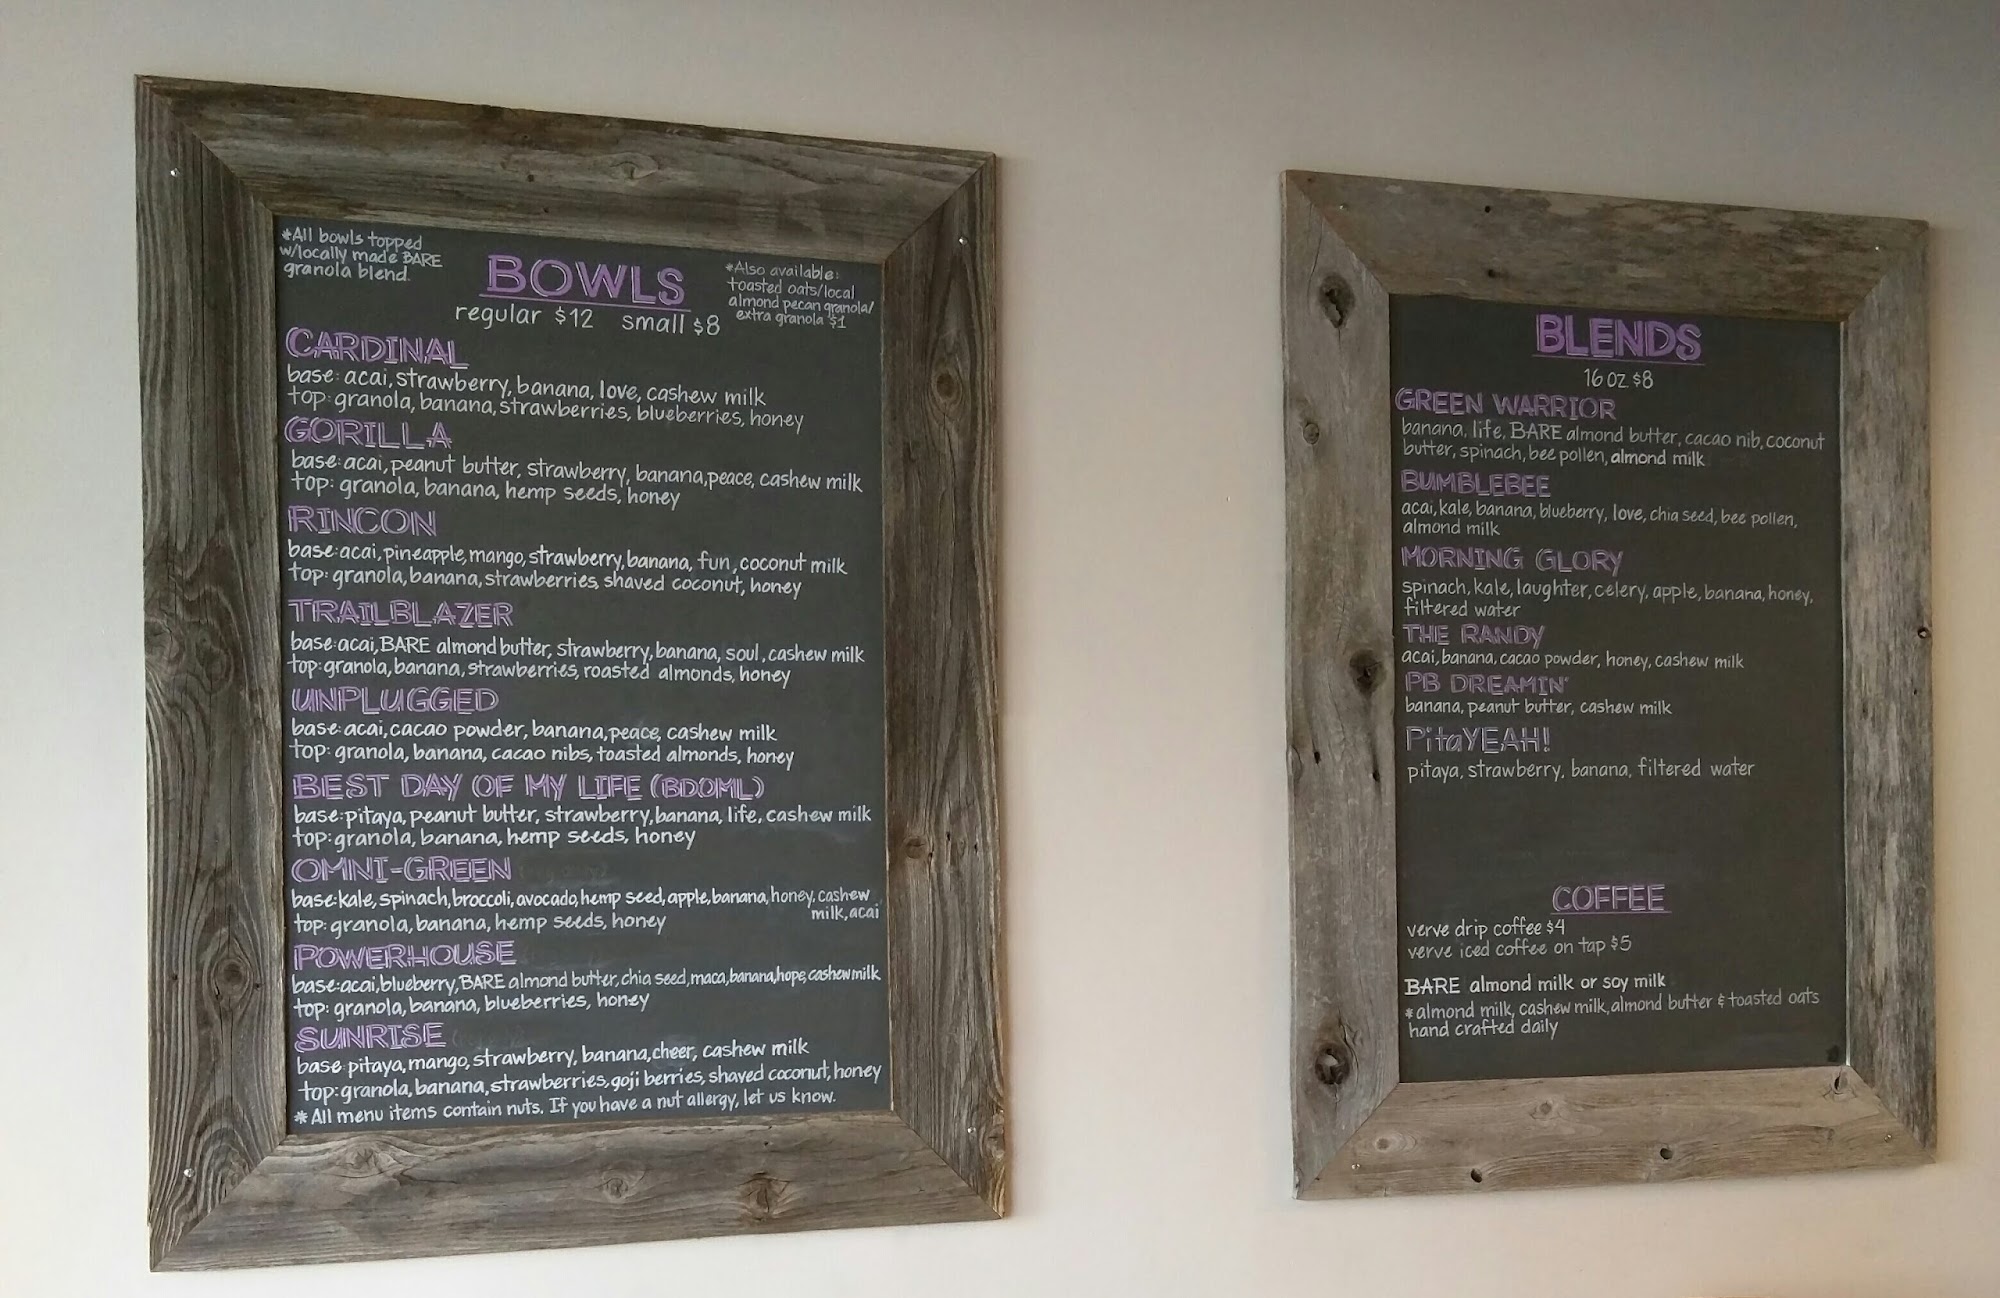 *All bowls topped
w/locally made BARE
granola blend.
BOWLS
regular $12 small $8
*Also available:
toasted oats/local
almond pecan granola/
extra granola $1
CARDINAL
base: acai, strawberry, banana, love, cashew milk
top: granola, banana, strawberries, blueberries, honey
GORILLA
base: acai, peanut butter, strawberry, banana, peace, cashew milk
top: granola, banana, hemp seeds, honey
RINCON
base: acai, pineapple, mango, strawberry, banana, fun, coconut milk
top: granola, banana, strawberries, shaved coconut, honey
TRAILBLAZER
base: acai, BARE almond butter, strawberry, banana, soul, cashew milk
top: granola, banana, strawberries, roasted almonds, honey
UNPLUGGED
base: acai, cacao powder, banana, peace, cashew milk
top: granola, banana, cacao nibs, toasted almonds, honey
BEST DAY OF MY LIFE (BDOML)
base: pitaya, peanut butter, strawberry, banana, life, cashew milk
top: granola, banana, hemp seeds, honey
OMNI-GREEN
base: kale, spinach, broccoli, avocado, hemp seed, apple, banana, honey, cashew
milk, acai
top: granola, banana, hemp seeds, honey
POWERHOUSE
base: acai, blueberry, BARE almond butter, chia seed, maca, banana, hope, cashew milk
top: granola, banana, blueberries, honey
SUNRISE
base: pitaya, mango, strawberry, banana, cheer, cashew milk
top: granola, banana, strawberries, goji berries, shaved coconut, honey
*All menu items contain nuts. If you have a nut allergy, let us know.
BLENDS
16 oz $8
GREEN WARRIOR
banana, life, BARE almond butter, cacao nib, coconut
butter, spinach, bee pollen, almond milk
BUMBLEBEE
acai, kale, banana, blueberry, love, chia seed, bee pollen,
almond milk
MORNING GLORY
spinach, kale, laughter, celery, apple, banana, honey,
filtered water
THE RANDY
acai, banana, cacao powder, honey, cashew milk
PB DREAMIN'
banana, peanut butter, cashew milk
PitaYEAH!
pitaya, strawberry, banana, filtered water
COFFEE
verve drip coffee $4
verve iced coffee on tap $5
BARE almond milk or soy milk
*almond milk, cashew milk, almond butter & toasted oats
hand crafted daily